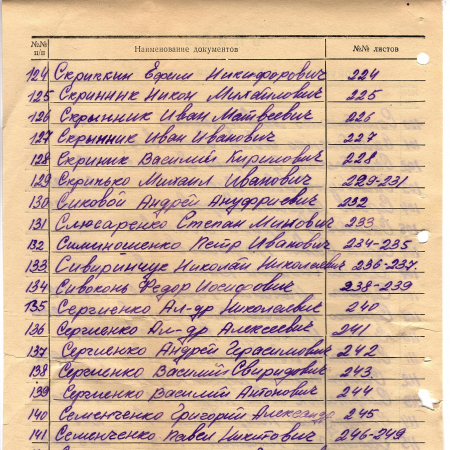 №№ п/п Наименование документов №№ листов
124 Скрипкин Ефим Никифорович 224
125 Скринник Никон Михайлович 225
126 Скрынник Иван Матвеевич 226
127 Скрынник Иван Иванович 227
128 Скриник Василий Кирилович 228
129 Скрипько Михаил Иванович 229-231
130 Сиковой Андрей Ануфриевич 232
131 Слюсаренко Степан Минович 233
132 Симиношенко Петр Иванович 234-235
133 Сивиринчук Николай Николаевич 236-237.
134 Сивоконь Федор Иосифович 238-239
135 Сергиенко Ал-др Николаевич 240
136 Сергиенко Ал-др Алексеевич 241
137 Сергиенко Андрей Герасимович 242
138 Сергиенко Василий Свиридович 243
139 Сергиенко Василий Антонович 244
140 Семенченко Григорий Александр 245
141 Семенченко Павел Никитович 246-249